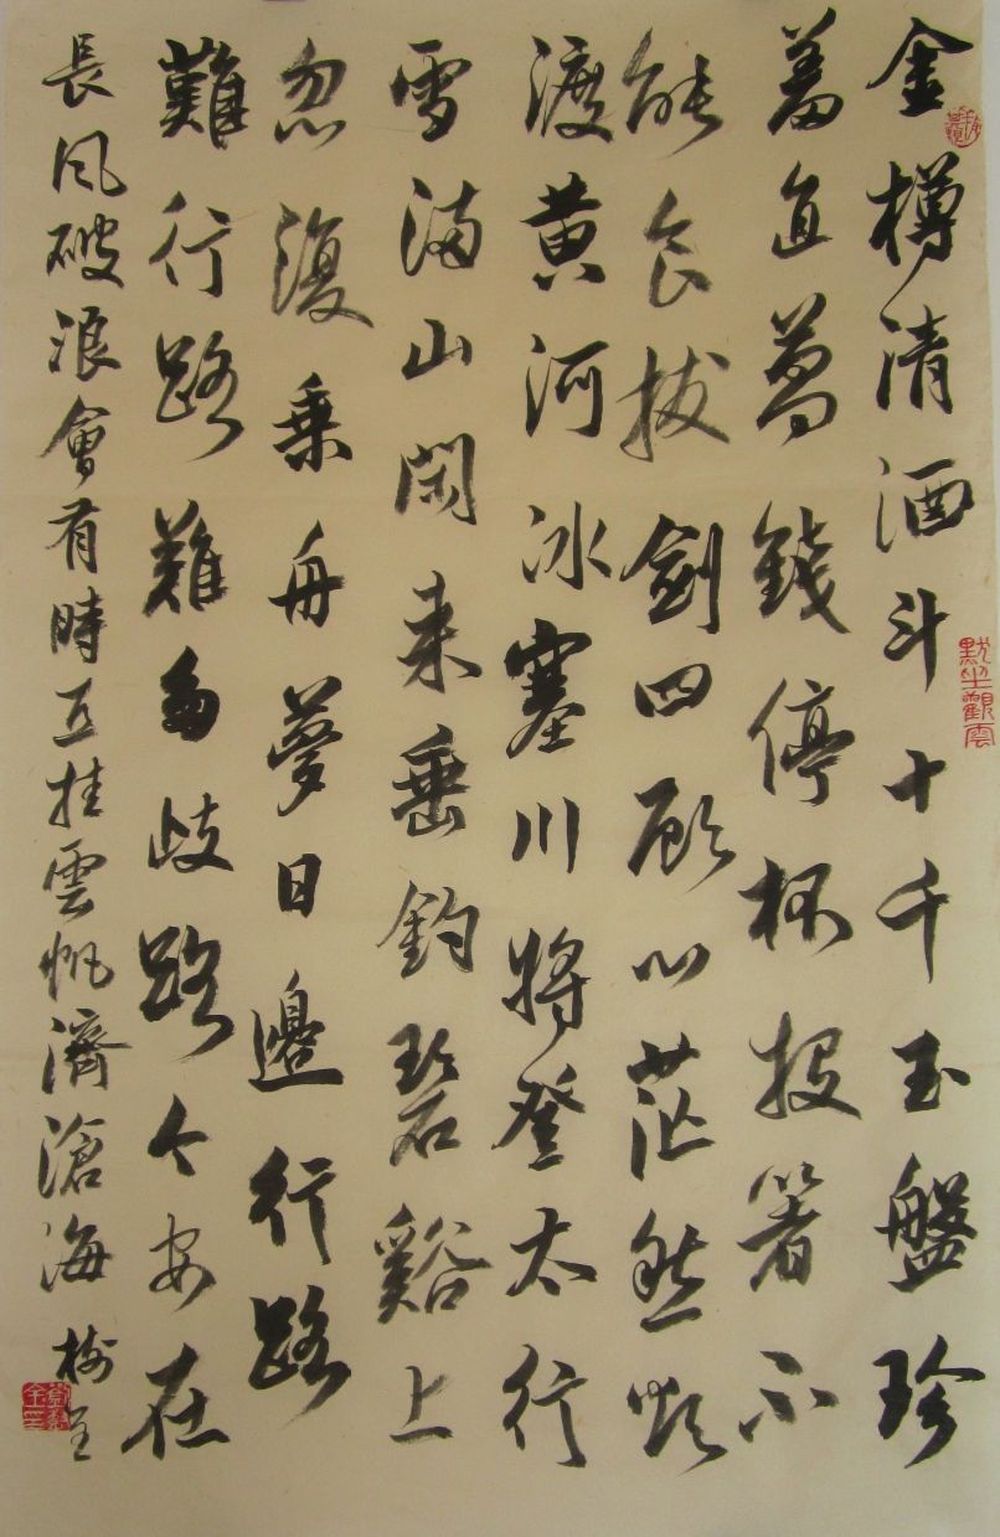 金樽清酒斗十千玉盤珍
羞直萬錢停杯投箸不
能食拔劍四顧心茫然欲
渡黄河冰塞川將登太行
雪滿山閑来垂釣碧谿上
忽復乘舟夢日邊行路
難行路難多歧路今安在
長風破浪會有時直挂雲帆濟滄海
默坐觀雲